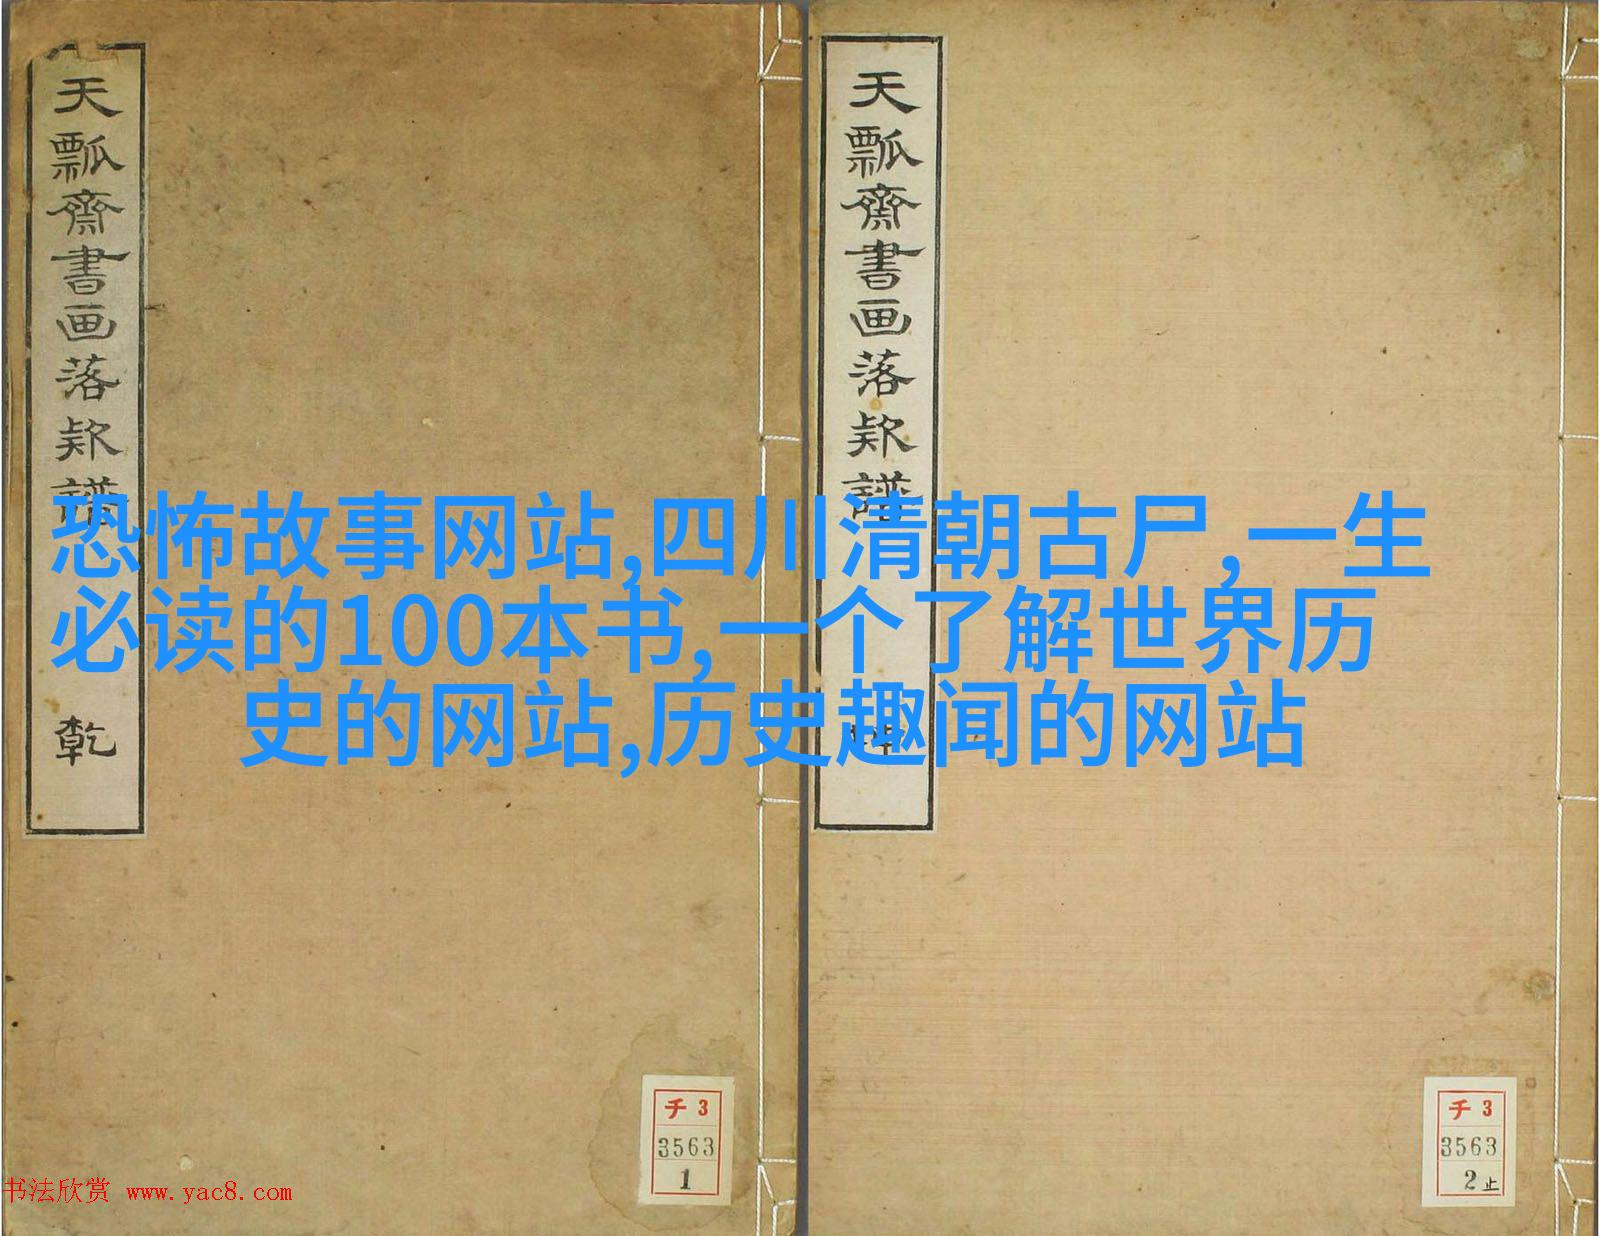 天瓢齋書画落款譜
乾
天瓢齋書画落款譜
恐怖故事网站,四川清朝古尸,一生
必读的100本书,一个了解世界历
史的网站,历史趣闻的网站
チ3
3563
1
チ3
3563
2止
书法欣赏 www.yac8.com